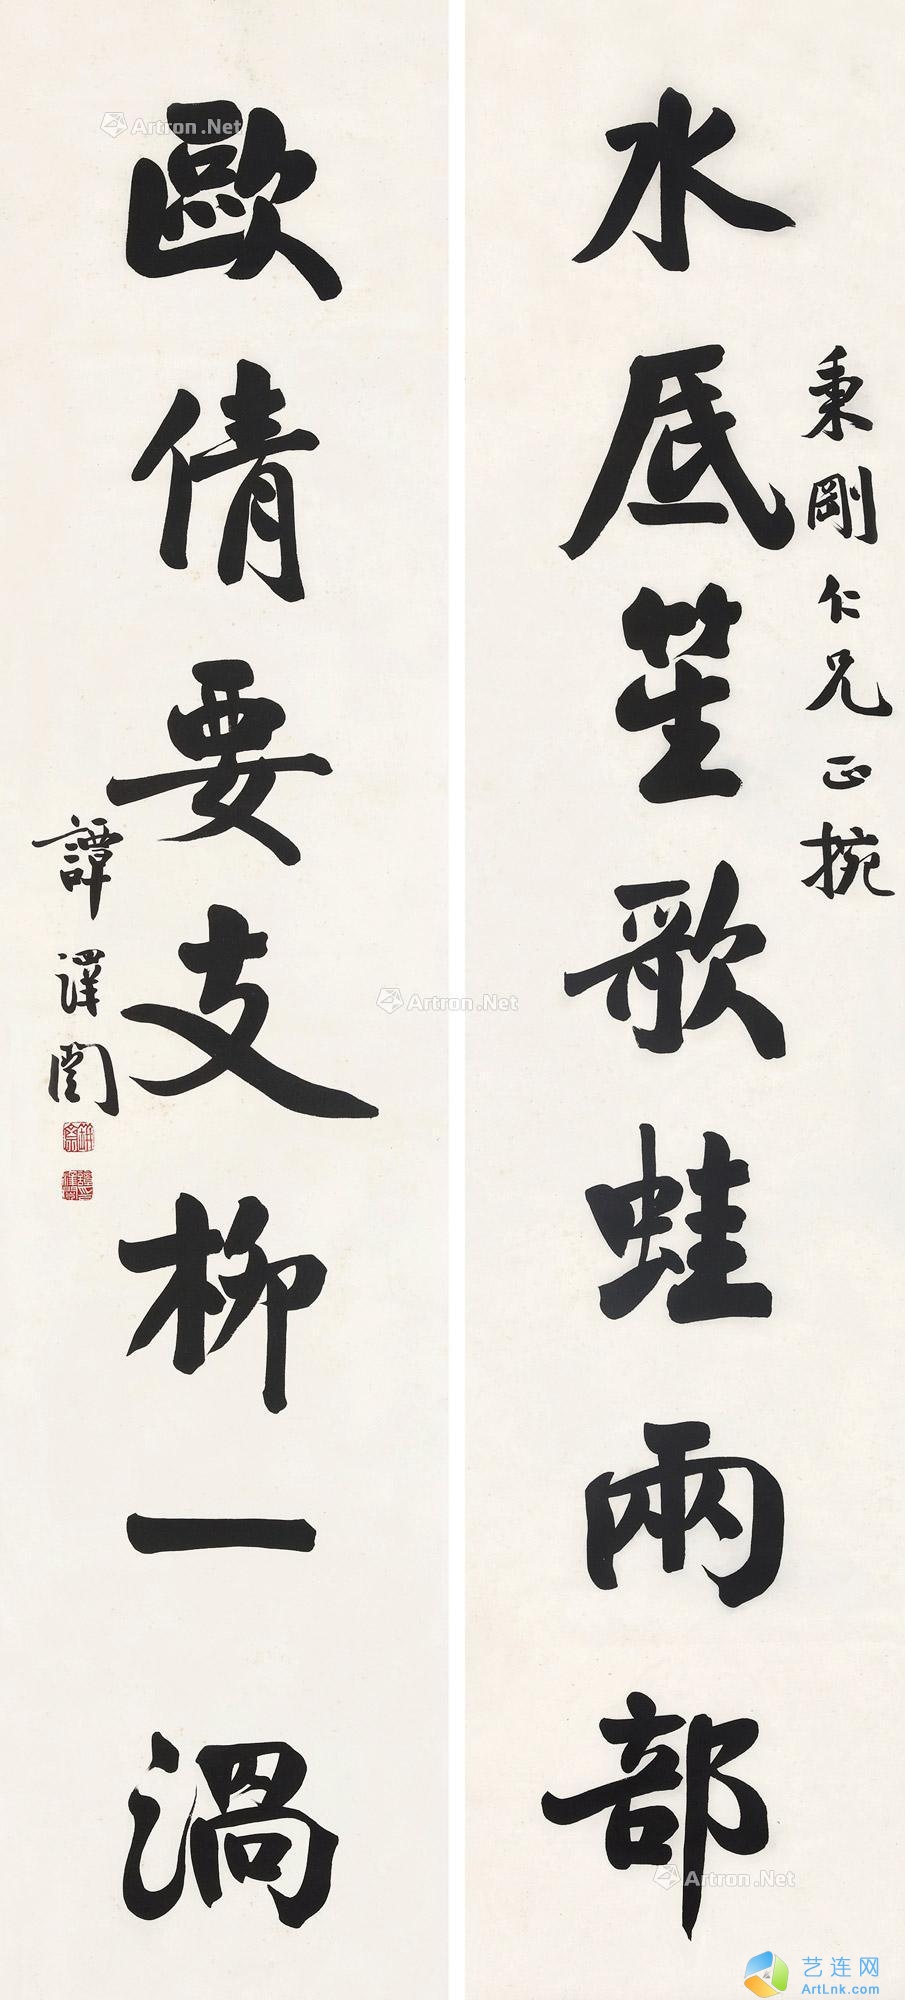 秉剛仁兄正捥
水底笙歌蛙兩部
歐倩要支柳一渦
譚澤闓
Artron.Net
Artron.Net
Artron.Net
艺连网
ArtLnk.com